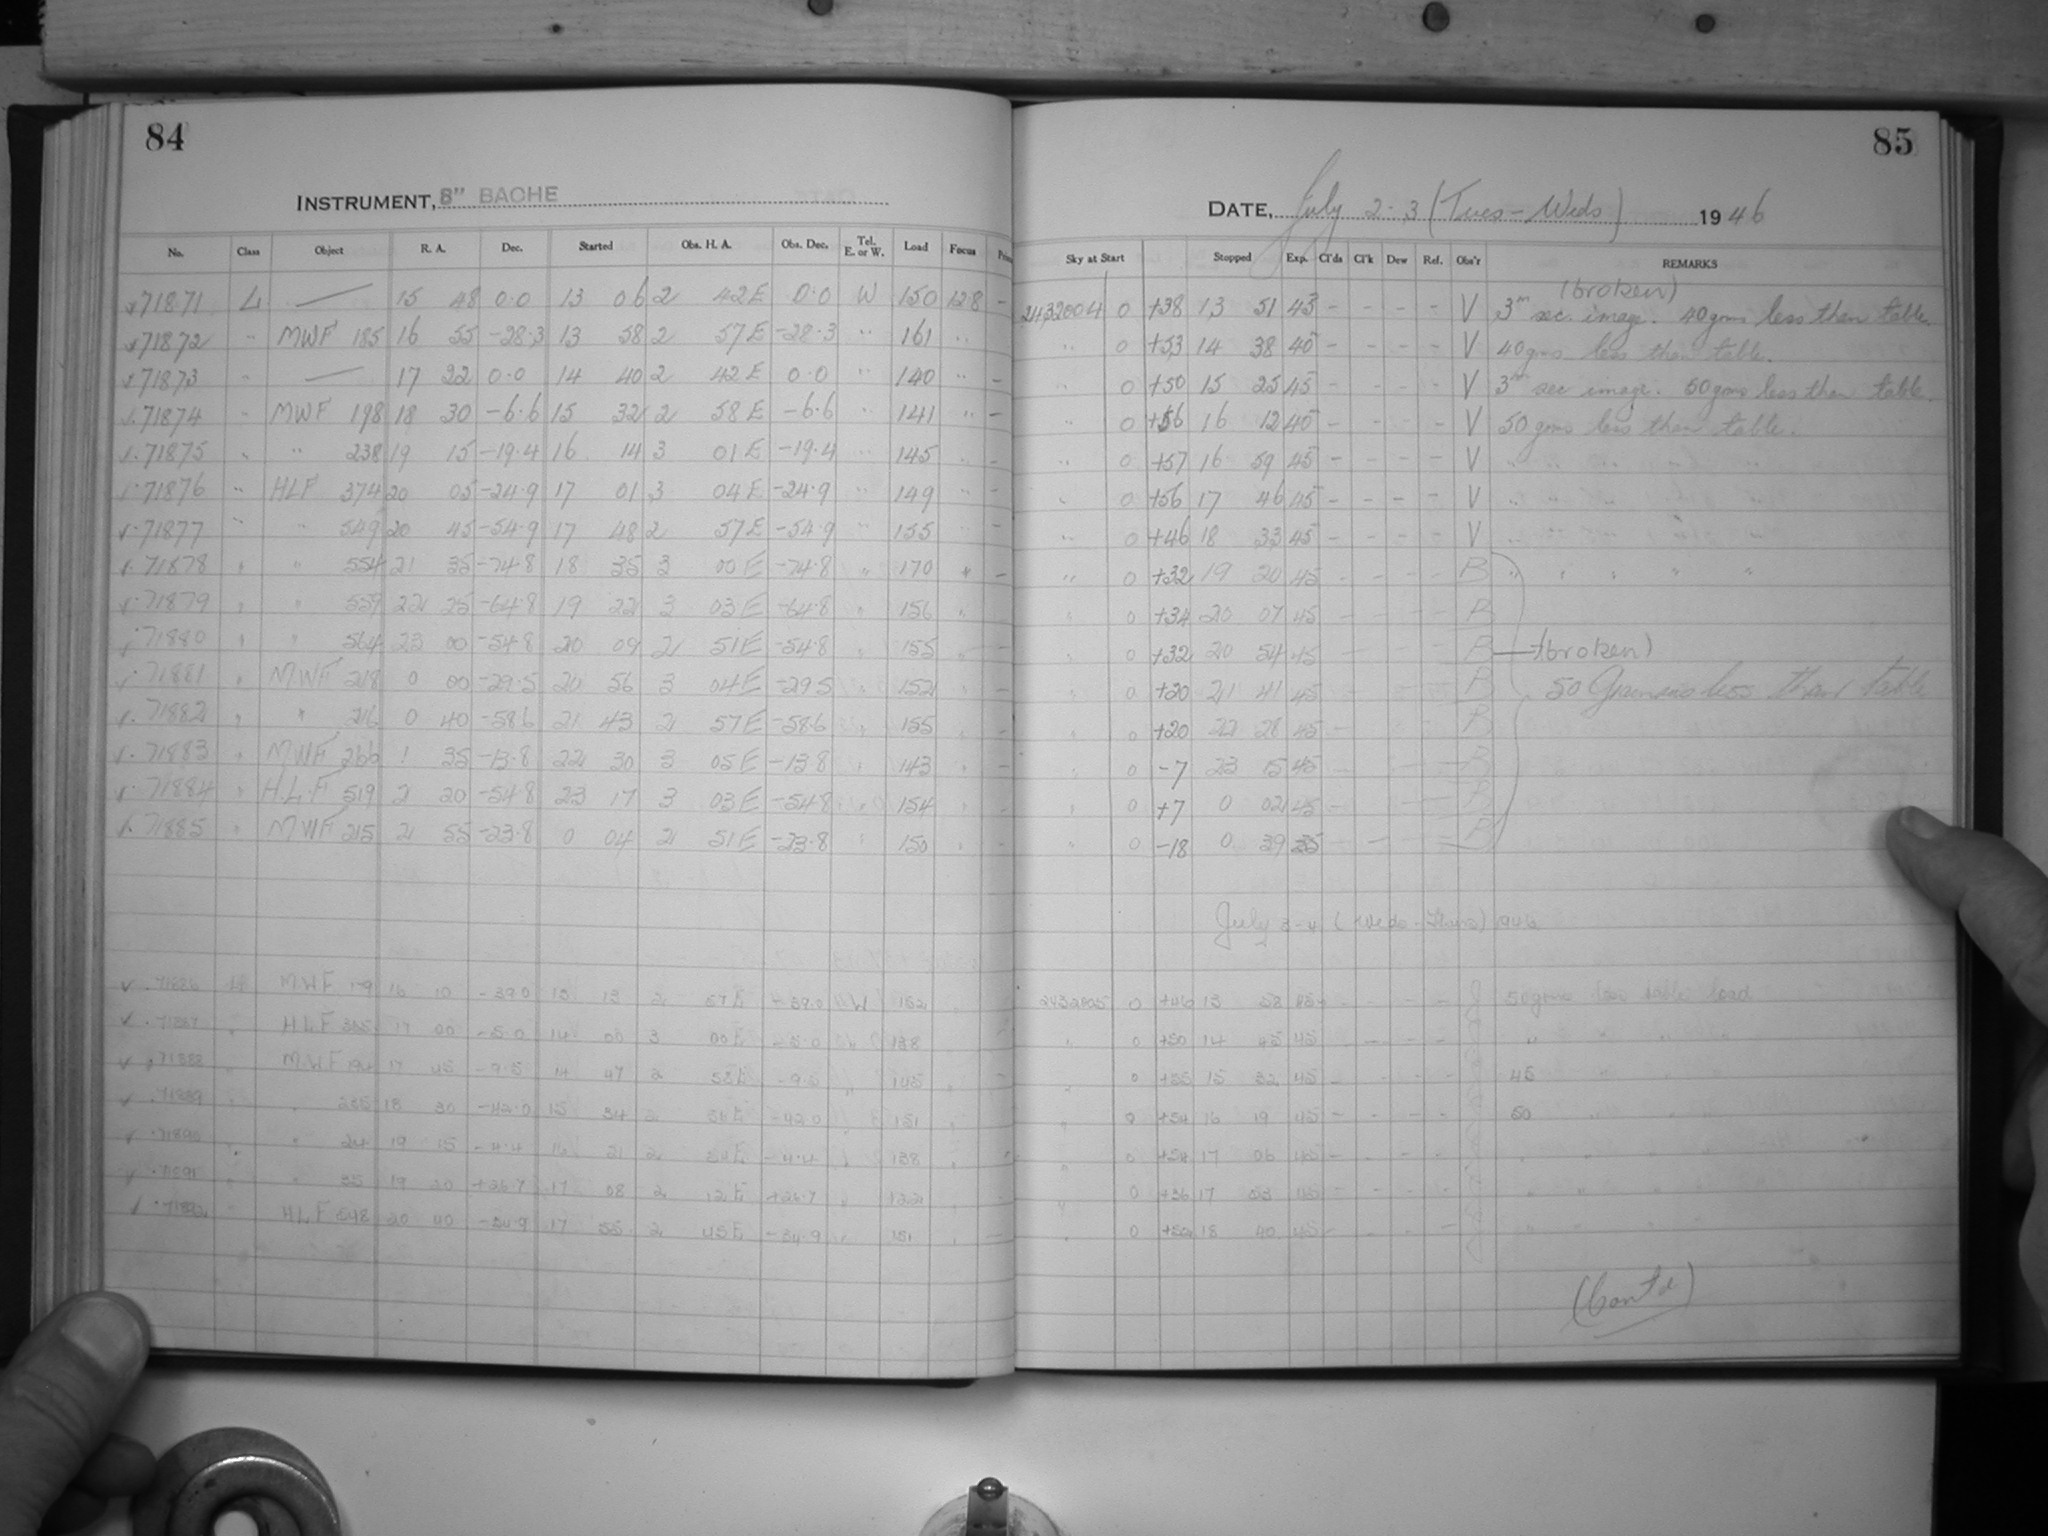 84
85
INSTRUMENT, 8" BACHE
DATE, July 2-3 (Tues-Weds) 1946
No. Class Object R. A. Dec. Started Obs. H. A. Obs. Dec. Tel. E. or W. Load Focus
Sky at Start Stopped Exp. Cl'ds Cl'k Dew Ref. Obs'r REMARKS
(broken)
71871 L — 15 48 0.0 13 06 2 42E 0.0 W 150 12.8 – 2432004 0 +38 13 51 45 – – – – V 3m sec. image. 40gms less than table.
71872 " MWF 185 16 55 -28.3 13 58 2 57E -28.3 " 161 " " 0 +53 14 38 40 – – – – V 40gms less than table.
71873 " — 17 22 0.0 14 40 2 42E 0.0 " 140 " – " 0 +50 15 25 45 – – – – V 3m sec image. 50gms less than table.
71874 " MWF 198 18 30 -6.6 15 32 2 58E -6.6 " 141 " – " 0 +56 16 12 40 – – – – V 50 gms less than table.
71875 " " 238 19 15 -19.4 16 14 3 01E -19.4 " 145 " – " 0 +57 16 59 45 – – – – V " " " " "
71876 " HLF 374 20 05 -24.9 17 01 3 04E -24.9 " 149 " – " 0 +56 17 46 45 – – – – V " " " " "
71877 " " 549 20 45 -54.9 17 48 2 57E -54.9 " 155 " – " 0 +46 18 33 45 – – – – V " " " " "
71878 " " 554 21 35 -74.8 18 35 3 00E -74.8 " 170 " – " 0 +32 19 20 45 – – – – B " " " " "
71879 " " 559 22 25 -64.8 19 22 3 03E -64.8 " 156 " – " 0 +34 20 07 45 – – – – B
71880 " " 564 23 00 -54.8 20 09 2 51E -54.8 " 155 " – " 0 +32 20 54 45 – – – – B (broken)
71881 " MWF 218 0 00 -29.5 20 56 3 04E -29.5 " 152 " – " 0 +20 21 41 45 – – – – B 50 less than table
71882 " " 216 0 40 -58.6 21 43 2 57E -58.6 " 155 " – " 0 +20 22 28 45 – – – – B
71883 " MWF 266 1 35 -13.8 22 30 3 05E -13.8 " 143 " – " 0 -7 23 15 45 – – – – B
71884 " H.L.F 519 2 20 -54.8 23 17 3 03E -54.8 " 154 " – " 0 +7 0 02 45 – – – – B
71885 " MWF 215 2 55 -23.8 0 04 2 51E -23.8 " 150 " – " 0 -18 0 39 35 – – – – B
July 3-4 (Weds-Thurs) 1946
71886 MWF 179 16 10 -39.0 13 13 2 57E -39.0 W 152 2432005 0 +46 13 58 45 – – – – J 50gms less table load
71887 " HLF 355 17 00 -5.0 14 00 3 00E -5.0 138 " 0 +50 14 45 45 – – – – " " " "
71888 " MWF 194 17 45 -9.5 14 47 2 58E -9.5 " 145 " 0 +55 15 32 45 – – – – 45
71889 " 18 30 -42.0 15 34 2 -42.0 151 " 0 +54 16 19 45 – – – – 50 " " "
71890 " 24 19 15 -4.4 16 21 2 54E -4.4 138 " 0 +54 17 06 45 – – – – " " " "
71891 " 35 19 20 +26.7 17 08 2 12E +26.7 122 " 0 +36 17 53 45 – – – – " " " "
71892 " HLF 548 20 40 -54.9 17 55 2 45E -54.9 151 " 0 18 40 45 – – – – " " " "
(Cont'd)